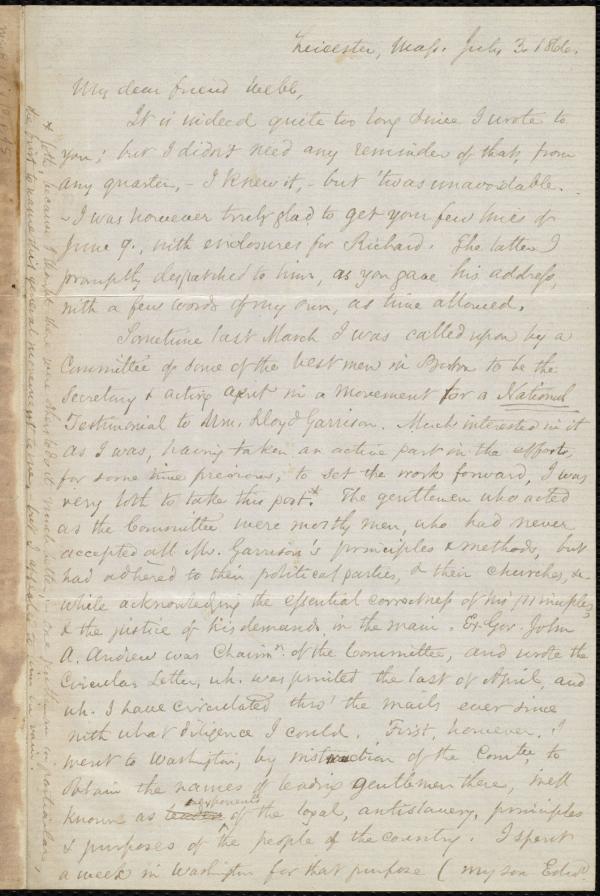 Leicester, Mass. July 3. 1866.
My dear friend Webb,
It is indeed quite too long since I wrote to
you; but I didn't need any reminder of that, from
any quarter, - I knew it, - but 'twas unavoidable.
- I was however truly glad to get your few lines of
June 9., with enclosures for Richard. The latter I
promptly despatched to him, as you gave his address,
with a few words of my own, as time allowed.
Sometime last March I was called upon by a
Committee of some of the best men in Boston to be the
Secretary & acting agent in a movement for a National
Testimonial to Wm. Lloyd Garrison. Much interested in it
as I was, having taken an active part in the efforts,
for some time previous, to set the work forward, I was
very loth to take this post.* The gentlemen who acted
as the Committee were mostly men, who had never
accepted all Mr. Garrison's principles & methods, but
had adhered to their political parties, & their churches, &c
while acknowledging the essential correctness of his principles,
& the justice of his demands in the main. Ex. Gov. John
A. Andrew was Chairmn. of the Committee, and wrote the
Circular Letter, wh. was printed the last of April, and
wh. I have circulated thro' the mails ever since
with what diligence I could. First, however, I
went to Washington, by instruction of the Comtee, to
obtain the names of leading gentlemen there, well
known as exponents of the loyal, antislavery, principles
& purposes of the people of the country. I spent
a week in Washington for that purpose (my son Edwd
* loth, because I thought there were others to do it much better, one gentleman in particular,
the first to name this general movement to me, but I